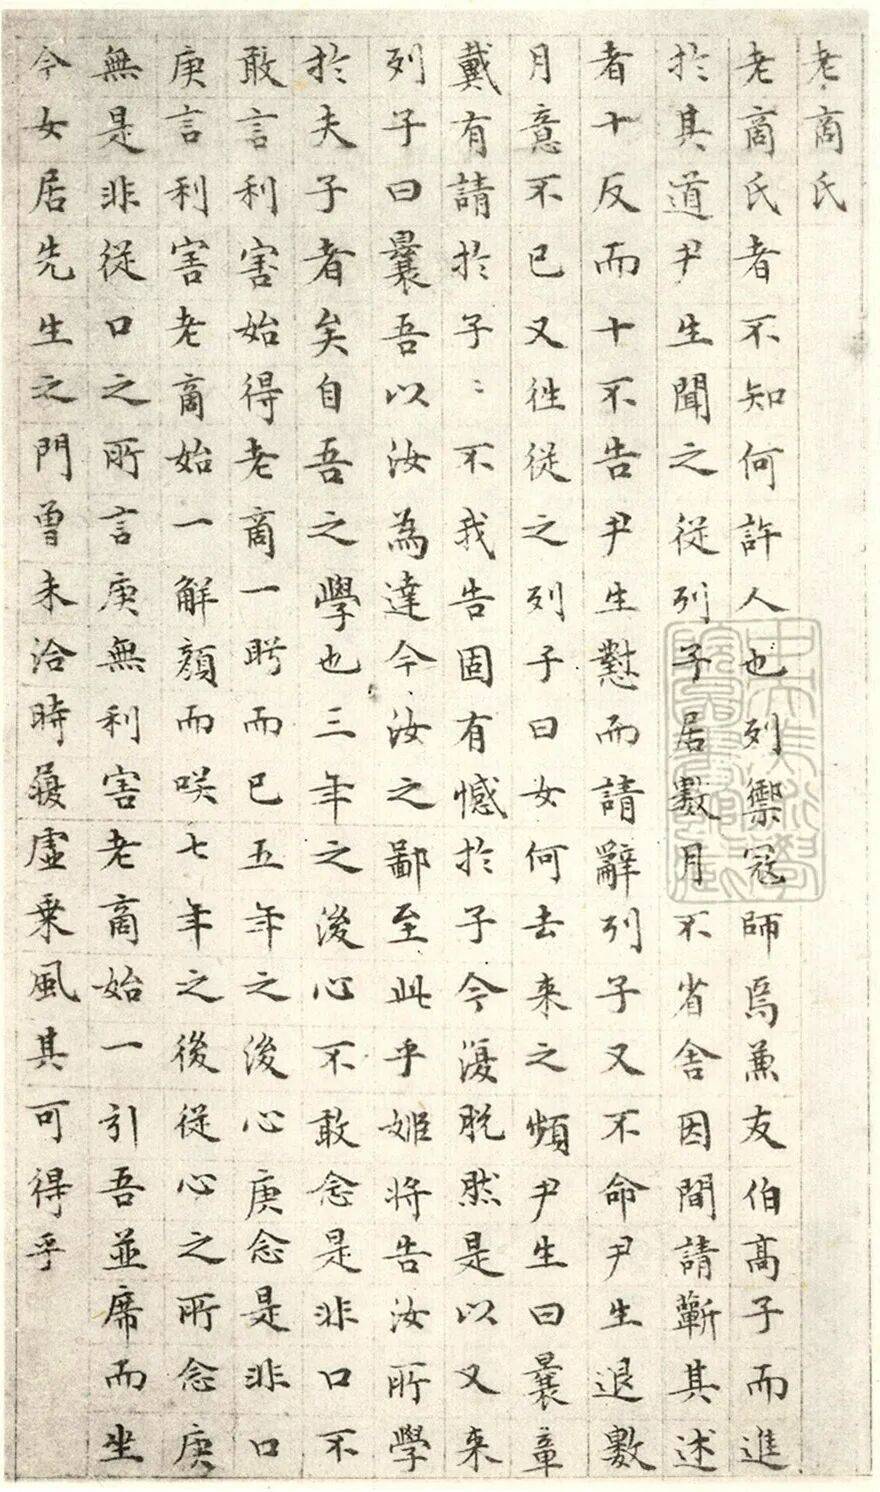 老商氏
老商氏者不知何許人也列禦冦師焉兼友伯高子而進
於其道尹生聞之從列子居數月不省舍因間請蘄其述
者十反而十不告尹生懟而請辭列子又不命尹生退數
月意不已又徃從之列子曰女何去来之頻尹生曰曩章
戴有請於子〻不我告固有憾於子今復脱然是以又来
列子曰曩吾以汝為達今汝之鄙至此乎姬将告汝所學
於夫子者矣自吾之學也三年之後心不敢念是非口不
敢言利害始得老商一眄而已五年之後心庚念是非口
庚言利害老商始一解顔而咲七年之後從心之所念庚
無是非從口之所言庚無利害老商始一引吾並席而坐
今女居先生之門曽未洽時履虚乗風其可得乎